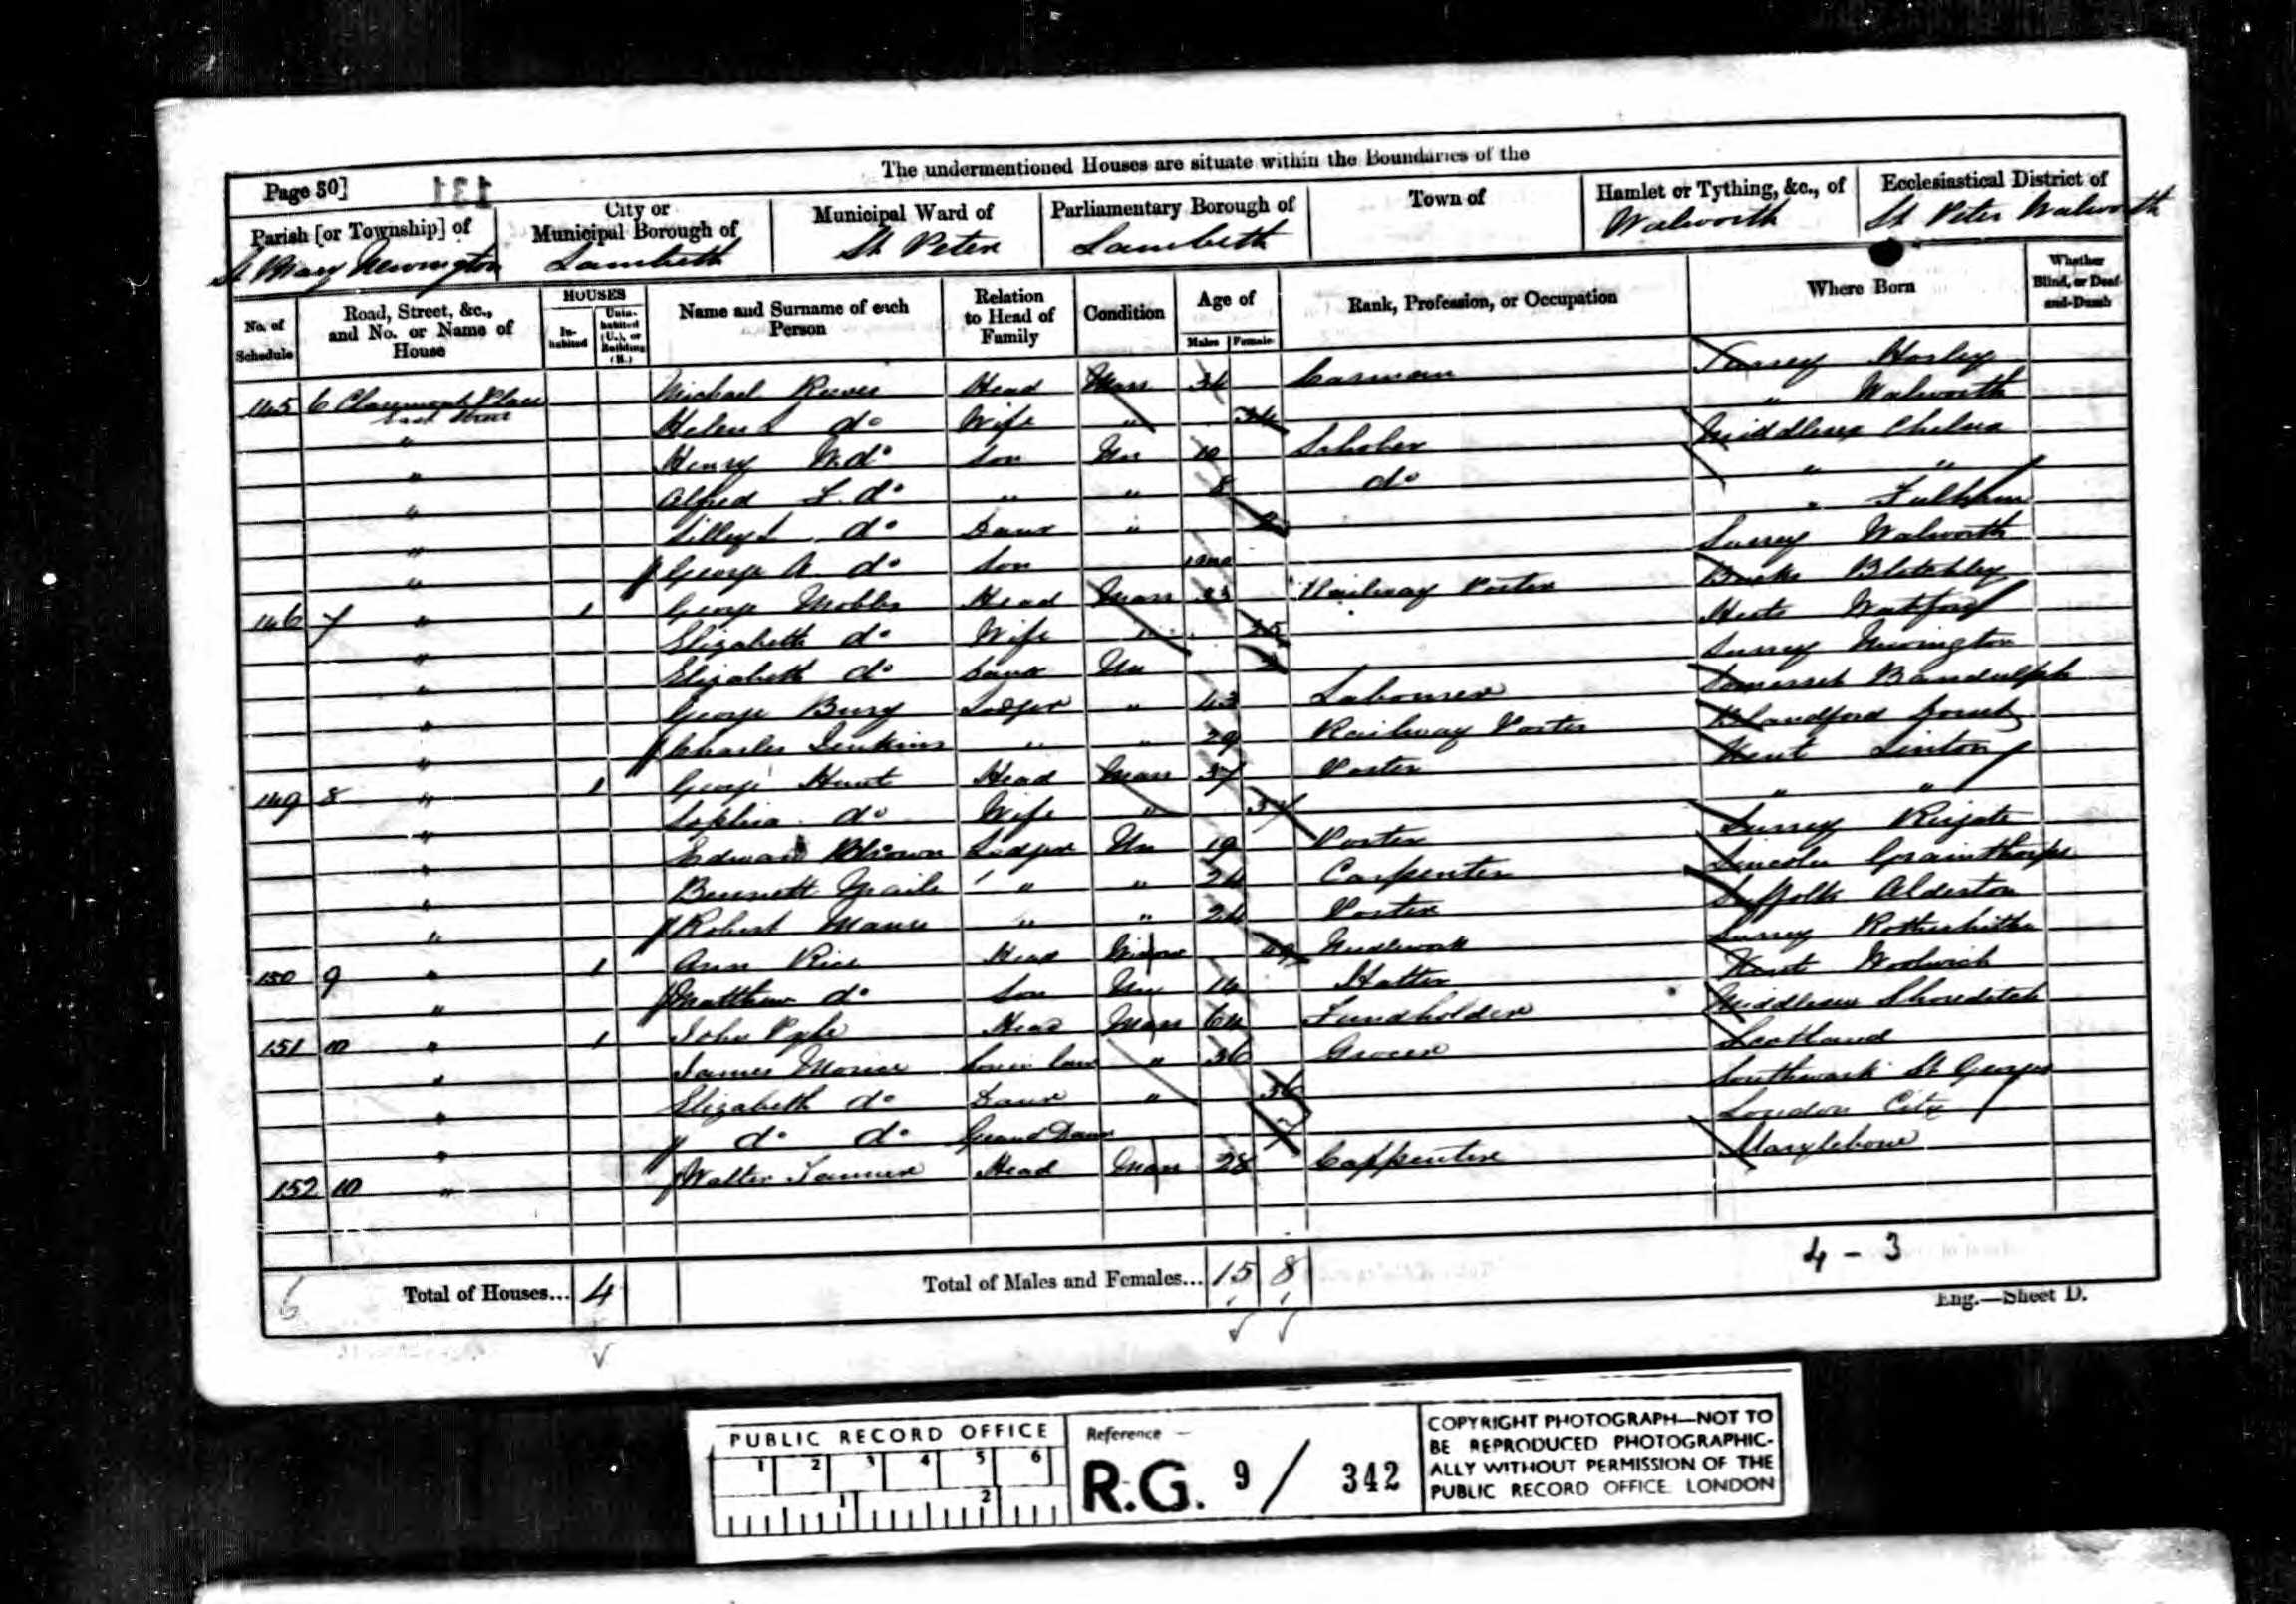 The undermentioned Houses are situate within the Boundaries of the
Page 30] 131
Parish [or Township] of City or Municipal Borough of Municipal Ward of Parliamentary Borough of Town of Hamlet or Tything, &c., of Ecclesiastical District of
St Mary Newington Lambeth St Peter Lambeth Walworth St Peter Walworth
No. of Schedule Road, Street, &c., and No. or Name of House HOUSES Inhabited Uninhabited (U.), or Building (B.) Name and Surname of each Person Relation to Head of Family Condition Age of Males Females Rank, Profession, or Occupation Where Born Whether Blind, or Deaf-and-Dumb
145 6 Claremont Place Michael Reeves Head Marr 34 Carman Surrey Horley
East Street
" Helen L do Wife " 34 " Walworth
" Henry W. do Son Un 10 Scholar Middlesex Chelsea
" Alfred F. do " " 8 do " "
" Lilley L do Daur " " Fulham
" George A do Son Surrey Walworth
146 7 " 1 George Mobbs Head Marr 33 Railway Porter Bucks Bletchley
" Elizabeth do Wife " 25 Herts Watford
" Elizabeth do Daur Un 2 Surrey Newington
" George Burg Lodger " 43 Labourer Somerset
" Charles Jenkins " " 29 Railway Porter Blandford Dorset
149 8 " 1 George Hunt Head Marr 37 Porter Kent Linton
" Sophia do Wife " 37 " "
" Edward Brown Lodger Un 19 Porter Surrey Reigate
" Bennett " " 24 Carpenter Lincoln Grainthorpe
" Robert " " 24 Porter Suffolk Alderton
150 9 " 1 Ann Rice Head Widow 49 Needlework Surrey Rotherhithe
" Matthew do Son Un 14 Hatter Kent Woolwich
151 10 " 1 John Pyle Head Marr 64 Fundholder Middlesex Shoreditch
" James Morice Son in law " 36 Grocer Scotland
" Elizabeth do Daur " 36 Southwark St Georges
" do do Grand Daur 7 London City
152 10 " Walter Tanner Head Marr 28 Carpenter Marylebone
4 - 3
Total of Houses... 4 Total of Males and Females... 15 8
Eng.—Sheet D.
PUBLIC RECORD OFFICE
1 2 3 4 5 6
1 2
Reference —
R.G. 9 / 342
COPYRIGHT PHOTOGRAPH—NOT TO
BE REPRODUCED PHOTOGRAPHIC-
ALLY WITHOUT PERMISSION OF THE
PUBLIC RECORD OFFICE. LONDON